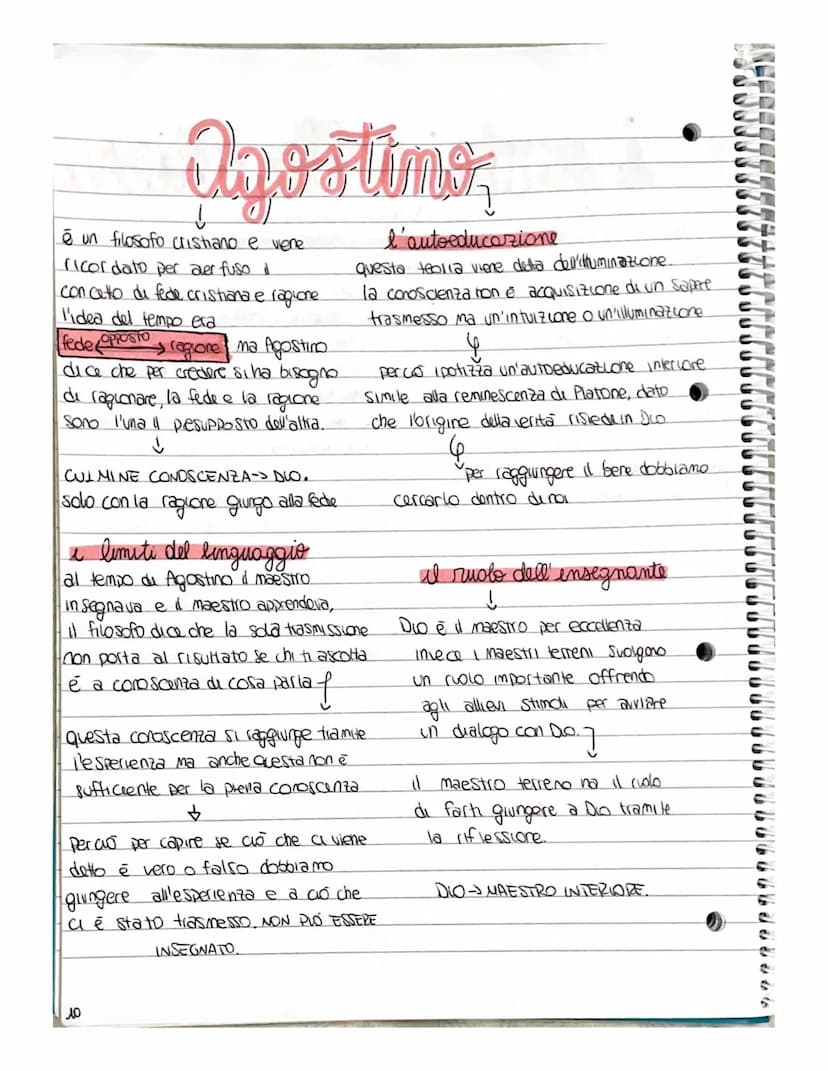 Agostino
è un filosofo cristiano e viene
ricordato per aer fuso il
concetto di fede cristiana e ragione
l'idea del tempo era
fede opposto ragione ma Agostino
dice che per credere si ha bisogno
di ragionare, la fede e la ragione
sono l'una il presupposto dell'altra.
CULMINE CONOSCENZA -> DIO.
solo con la ragione giungo alla fede
l'autoeducazione
questa teoria viene detta dell'illuminazione.
la conoscienza non è acquisizione di un sapere
trasmesso ma un'intuizione o un'illuminazione
per ciò ipotizza un'autoeducazione interiore
simile alla reminescenza di Platone, dato
che l'origine della verità risiede in Dio
per raggiungere il bene dobbiamo
cercarlo dentro di noi
i limiti del linguaggio
al tempo di Agostino il maestro
insegnava e il maestro apprendeva,
il filosofo dice che la sola trasmissione
non porta al risultato se chi ti ascolta
è a conoscenza di cosa parla
questa conoscenza si raggiunge tramite
l'esperienza ma anche questa non è
sufficente per la piena conoscenza
perciò per capire se ciò che ci viene
detto è vero o falso dobbiamo
giungere all'esperienza e a ciò che
ci è stato trasmesso. NON PUÒ ESSERE
INSEGNATO.
il ruolo dell'insegnante
DIO è il maestro per eccellenza
invece i maestri terreni svolgono
un ruolo importante offrendo
agli allievi stimoli per avviare
un dialogo con DIO.
il maestro terreno ha il ruolo
di farti giungere a Dio tramite
la riflessione.
DIO -> MAESTRO INTERIORE.
10